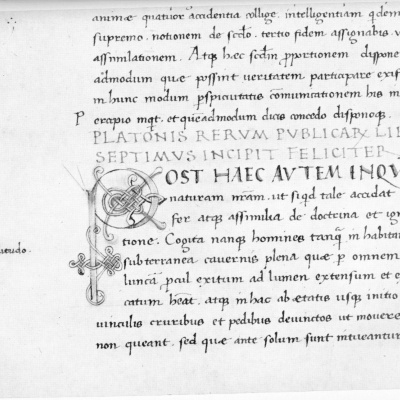 animae quatuor accidentia collige, intelligentiam qdem
supremo. notionem de scdo. tertio fidem assignabis. u
assimilationem. Atq haec scdm pportionem dispone
admodum quae possint ueritatem participare exis
in hunc modum pspicuitatis comunicationem his m
Percipio inqt. et queadmodum dicis concedo disponoq.
PLATONIS RERUM PUBLICAR LIB
SEPTIMUS INCIPIT FELICITER
POST HAEC AVTEM INQV
naturam nram. ut siqd tale accidat
for atq assimilia de doctrina et ign
tione. Cogita nanq homines tanq in habita
subterranea cauernis plena quae p omnem
luncā pcul exitum ad lumen extensum et e
catum heat. atq in hac ab aetatis usq initio
uinculis cruribus et pedibus deuinctos ut mouere
non queant. sed quae ante solum sunt intueantur